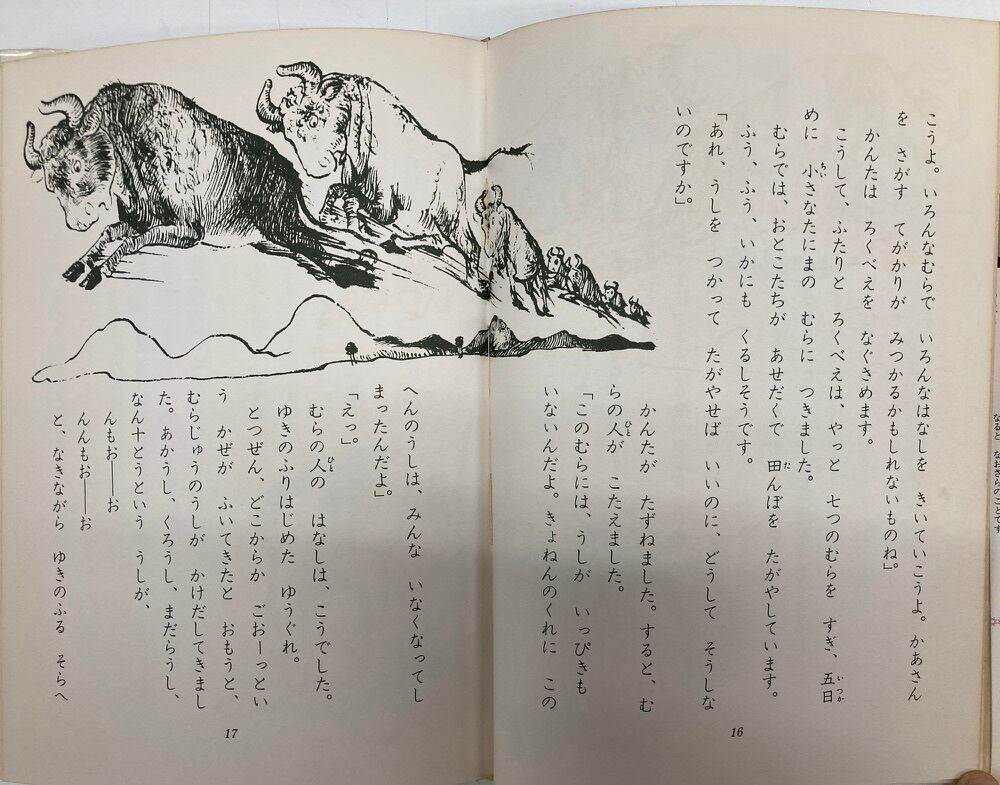 こうよ。いろんなむらで　いろんなはなしを　きいていこうよ。かあさん
を　さがす　てがかりが　みつかるかもしれないものね」。
かんたは　ろくべえを　なぐさめます。
こうして、ふたりと　ろくべえは、やっと　七つのむらを　すぎ、五日
めに　小さなたにまの　むらに　つきました。
むらでは、おとこたちが　あせだくで　田んぼを　たがやしています。
ふう、ふう、いかにも　くるしそうです。
「あれ、うしを　つかって　たがやせば　いいのに、どうして　そうしな
いのですか」。
かんたが　たずねました。すると、む
らの人が　こたえました。
「このむらには、うしが　いっぴきも
いないんだよ。きょねんのくれに　この
16
へんのうしは、みんな　いなくなってし
まったんだよ」。
「えっ」。
むらの人の　はなしは、こうでした。
ゆきのふりはじめた　ゆうぐれ。
とつぜん、どこからか　ごおーっとい
う　かぜが　ふいてきたと　おもうと、
むらじゅうのうしが　かけだしてきまし
た。あかうし、くろうし、まだらうし、
なん十とうという　うしが、
んもお――お
んんもお――お
と、なきながら　ゆきのふる　そらへ
17